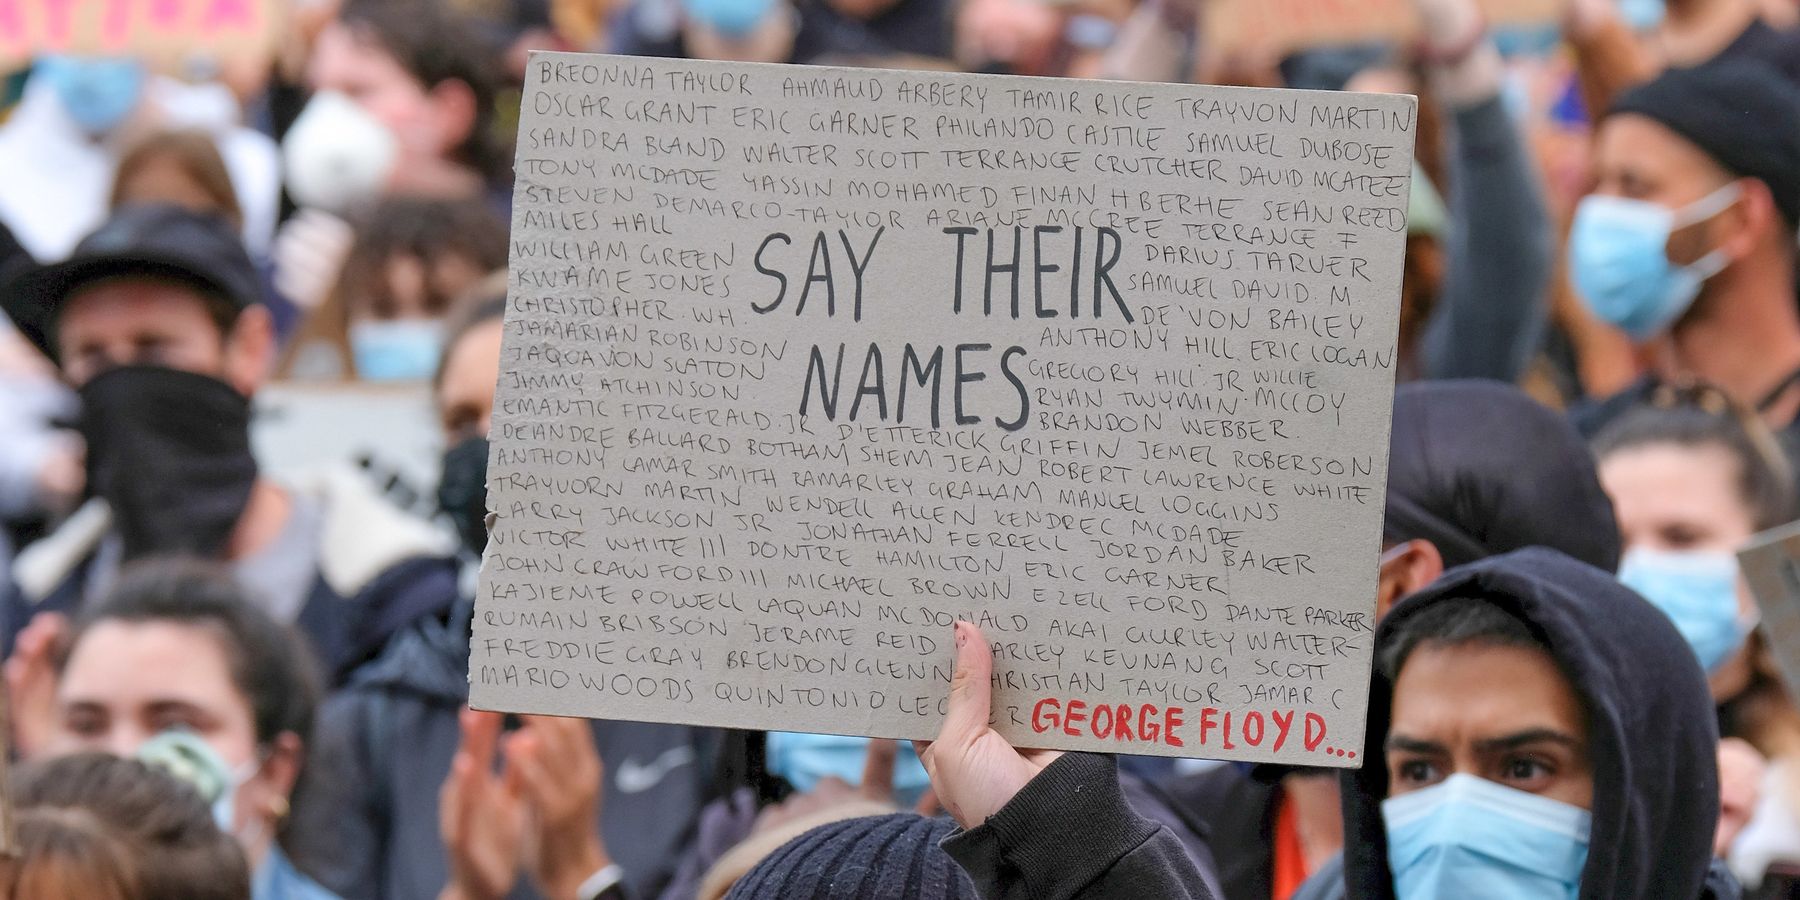 BREONNA TAYLOR AHMAUD ARBERY TAMIR RICE TRAYVON MARTIN
OSCAR GRANT ERIC GARNER PHILANDO CASTILE SAMUEL DUBOSE
SANDRA BLAND WALTER SCOTT TERRANCE CRUTCHER DAVID MCATEE
TONY MCDADE YASSIN MOHAMED FINAN H BERHE SEAN REED
STEVEN DEMARCO-TAYLOR ARIANE MCCREE TERRANCE F
MILES HALL
WILLIAM GREEN
KWAME JONES
CHRISTOPHER.WH.
JAMARIAN ROBINSON
JAQUAVON SLATON
JIMMY ATCHINSON
SAY THEIR
NAMES
DARIUS TARVER
SAMUEL DAVID.M
DE'VON BAILEY
ANTHONY HILL. ERIC LOGAN
GREGORY HILL.JR WILLIE
RYAN TWYMIN. MCCOY
BRANDON WEBBER.
EMANTIC FITZGERALD.JR D'ETTERICK GRIFFIN JEMEL ROBERSON
DEIANDRE BALLARD BOTHAM SHEM JEAN ROBERT LAWRENCE WHITE
ANTHONY LAMAR SMITH RAMARLEY GRAHAM MANUEL LOGGINS
TRAYVORN MARTIN WENDELL ALLEN KENDREC MCDADE
LARRY JACKSON JR JONATHAN FERRELL JORDAN BAKER
VICTOR WHITE III DONTRE HAMILTON ERIC GARNER
JOHN CRAWFORD III MICHAEL BROWN EZELL FORD DANTE PARKER
KAJIEME POWELL LAQUAN MCDONALD AKAI GURLEY WALTER-
RUMAIN BRIBSON JERAME REID ARLEY KEUNANG SCOTT
FREDDIE GRAY BRENDON GLENN CHRISTIAN TAYLOR JAMAR C
MARIO WOODS QUINTONIO LEGIER GEORGE FLOYD...